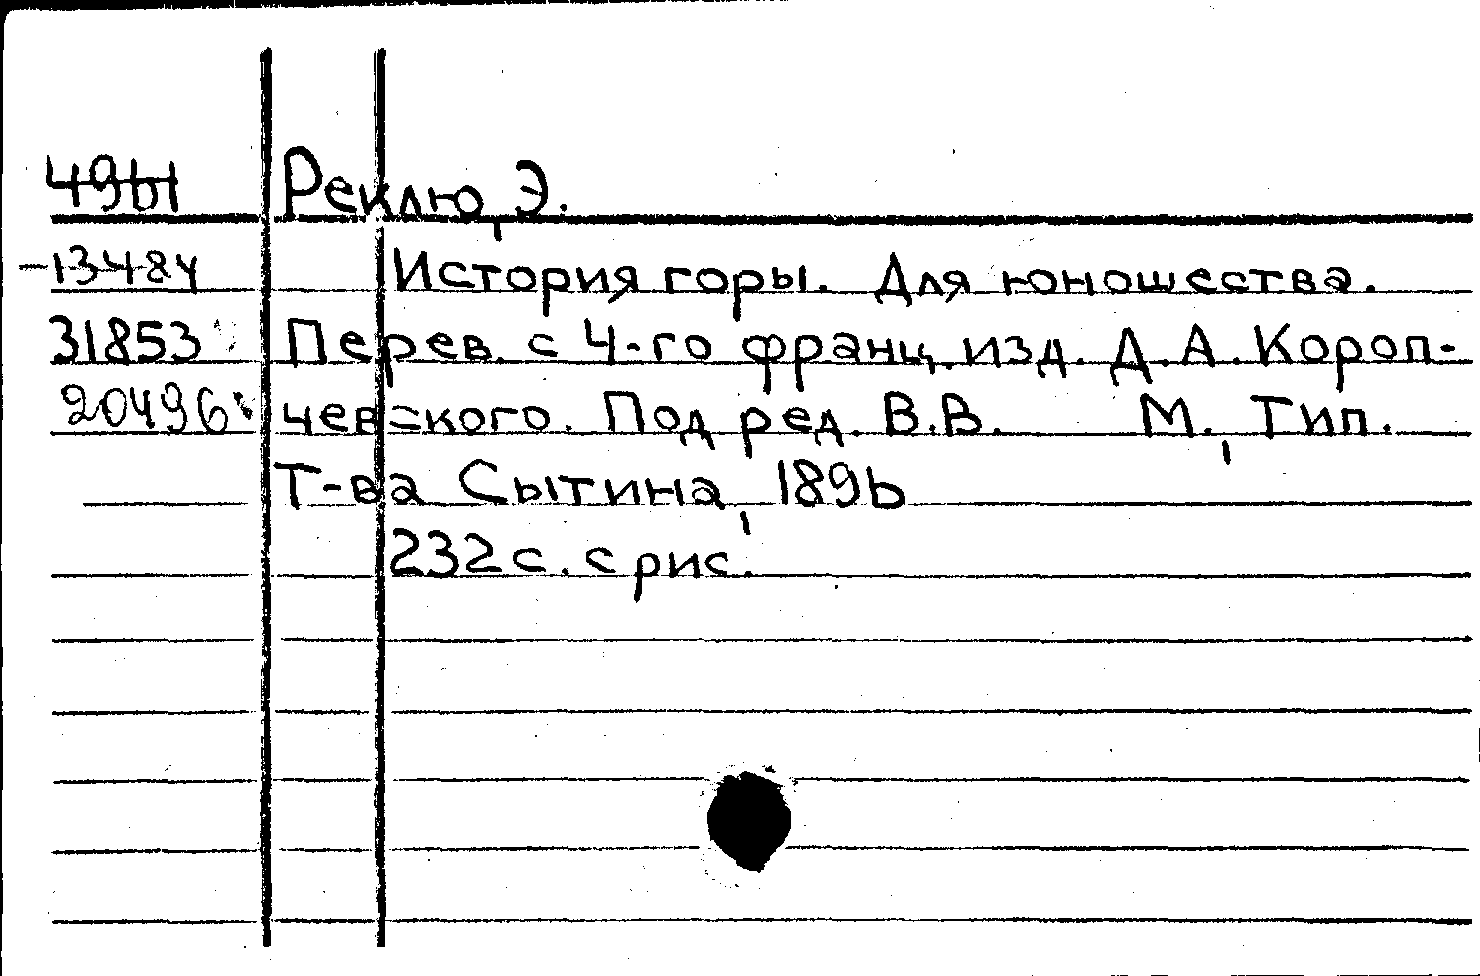 4961 Реклю, Э.
-13484 История горы. Для юношества.
31853 Перев. с 4-го франц. изд. Д. А. Короп-
20496 чевского. Под ред. В.В. М., Тип.
Т-ва Сытина, 1896
232 с. с рис.